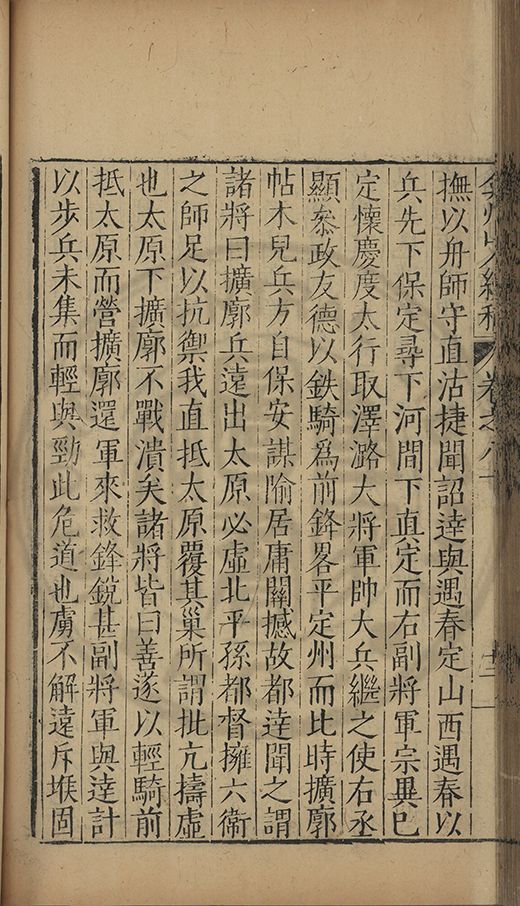 弇州山人續稿 卷之八十 十二
撫以舟師守直沽捷聞詔達與遇春定山西遇春以
兵先下保定尋下河間下真定而右副將軍宗異已
定懷慶度太行取澤潞大將軍帥大兵繼之使右丞
顯叅政友德以鉄騎爲前鋒畧平定州而比時擴廓
帖木兒兵方自保安謀隃居庸關撼故都達聞之謂
諸將曰擴廓兵遠出太原必虛北平孫都督擁六衛
之師足以抗禦我直抵太原覆其巢所謂批亢擣虛
也太原下擴廓不戰潰矣諸將皆曰善遂以輕騎前
抵太原而營擴廓還軍來救鋒銳甚副將軍與達計
以步兵未集而輕與勁此危道也虜不解遠斥堠固